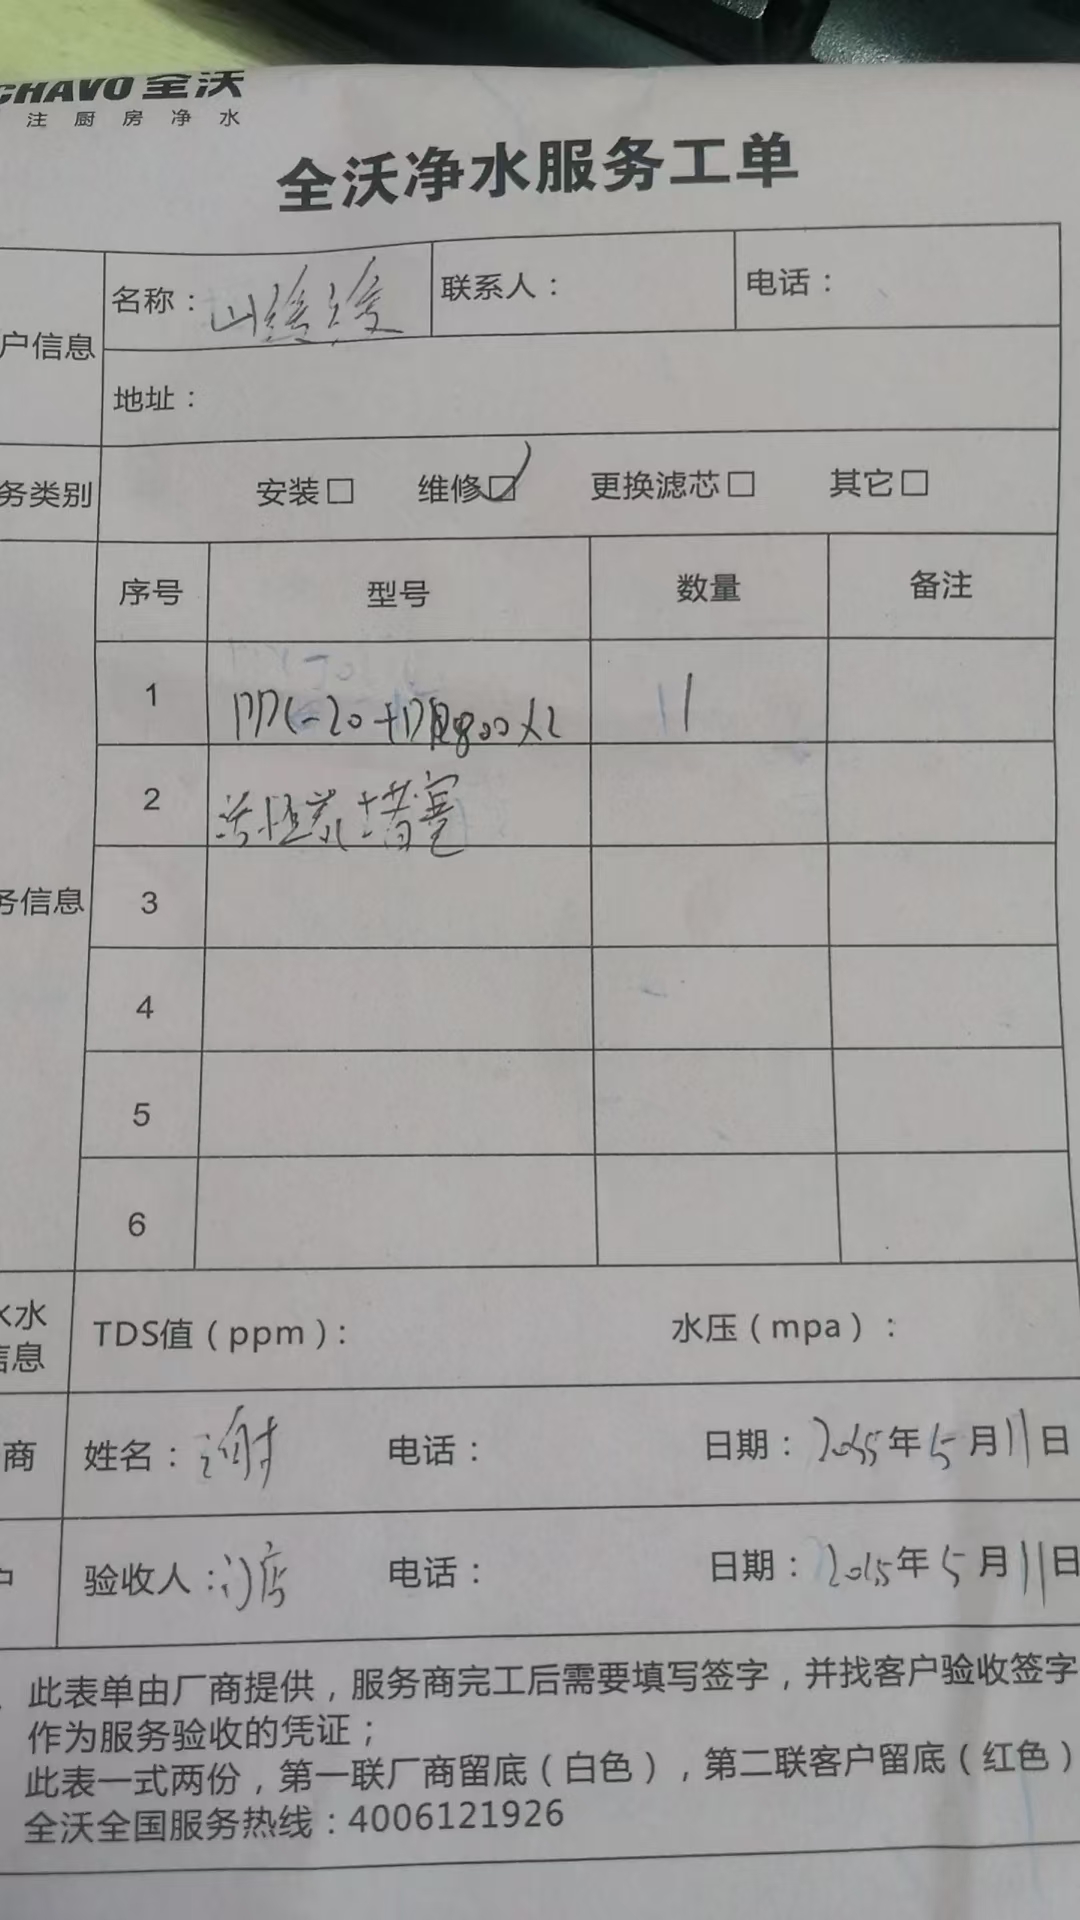 CHAVO 全沃
注厨房净水
全沃净水服务工单
户信息
名称：山缓缓
联系人：
电话：
地址：
务类别
安装□ 维修☑ 更换滤芯□ 其它□
务信息
序号 型号 数量 备注
1 1
2 活性炭堵塞
3
4
5
6
水水
信息
TDS值（ppm）： 水压（mpa）：
商
姓名：谢 电话： 日期：2025年5月11日
户
验收人：门店 电话： 日期：2025年5月11日
此表单由厂商提供，服务商完工后需要填写签字，并找客户验收签字
作为服务验收的凭证；
此表一式两份，第一联厂商留底（白色），第二联客户留底（红色）
全沃全国服务热线：4006121926